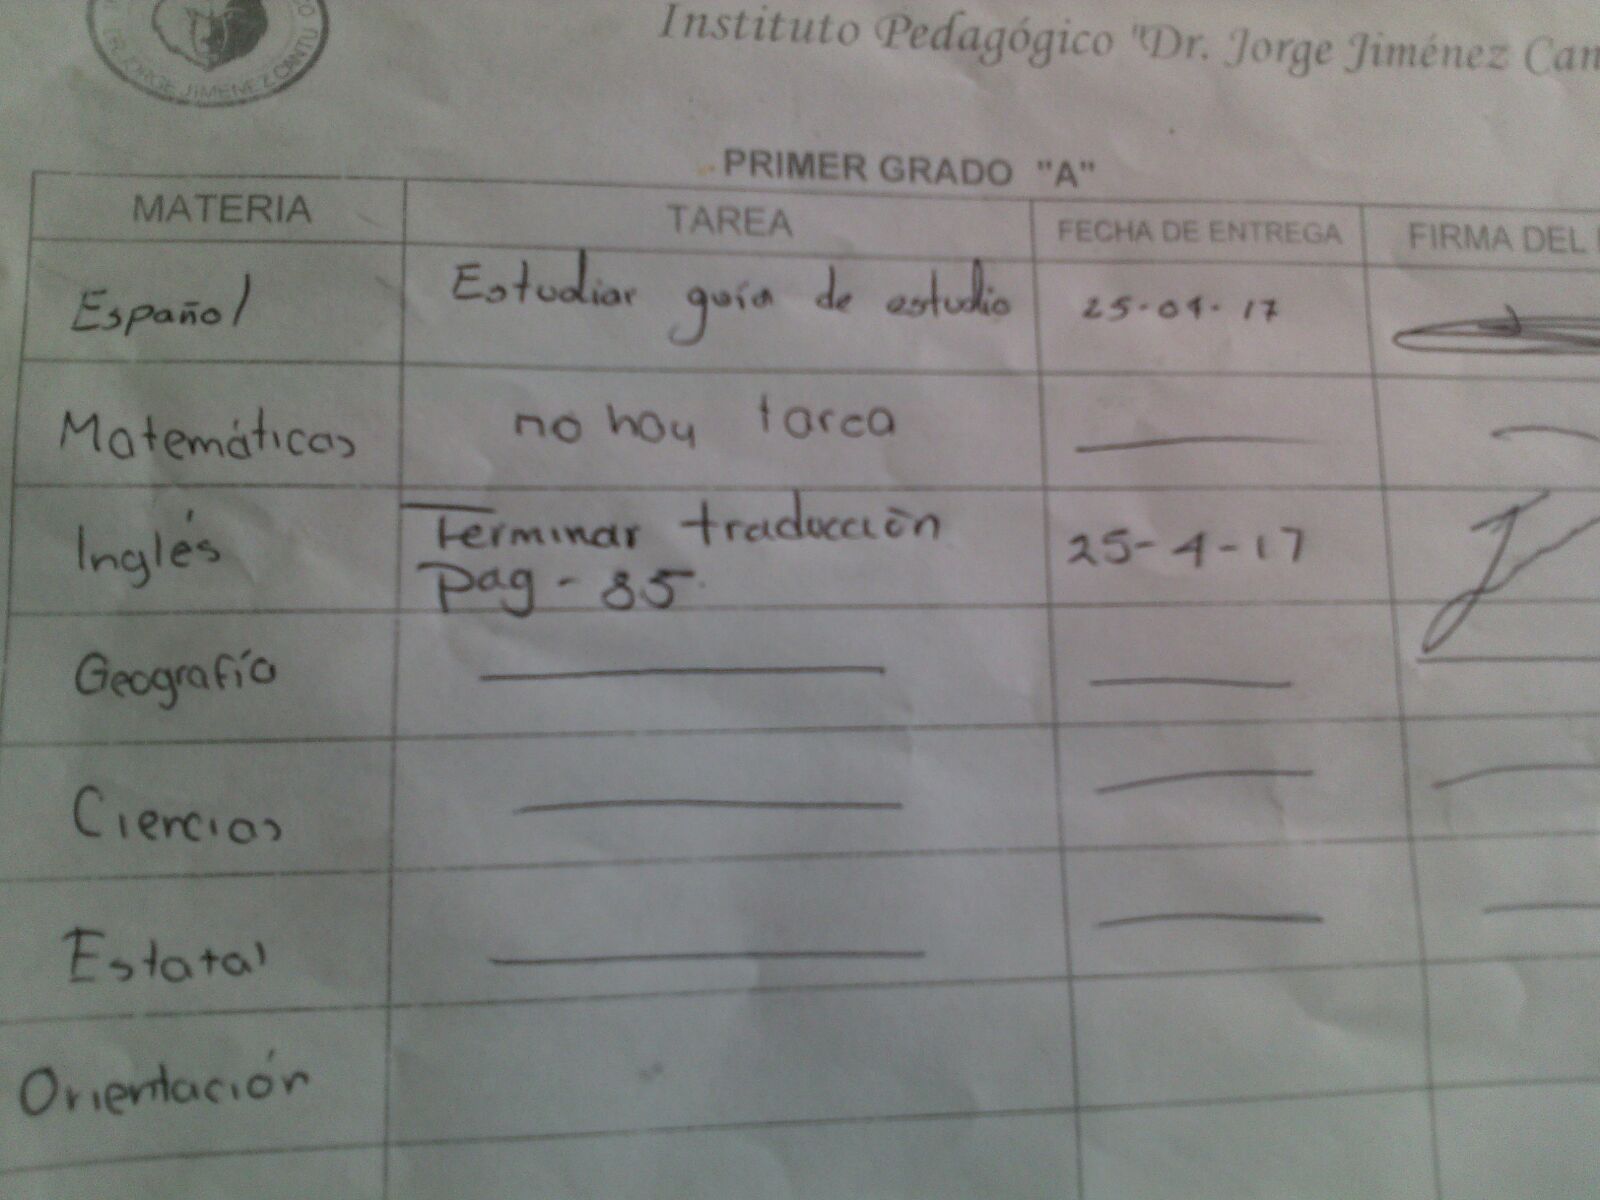 DR. JORGE JIMENEZ CANTU
Instituto Pedagógico "Dr. Jorge Jiménez Can
PRIMER GRADO "A"
MATERIA TAREA FECHA DE ENTREGA FIRMA DEL
Español Estudiar guía de estudio 25-04-17
Matemáticas no hay tarea
Inglés Terminar traducción 25-4-17
pag - 85
Geografía
Ciencias
Estatal
Orientación